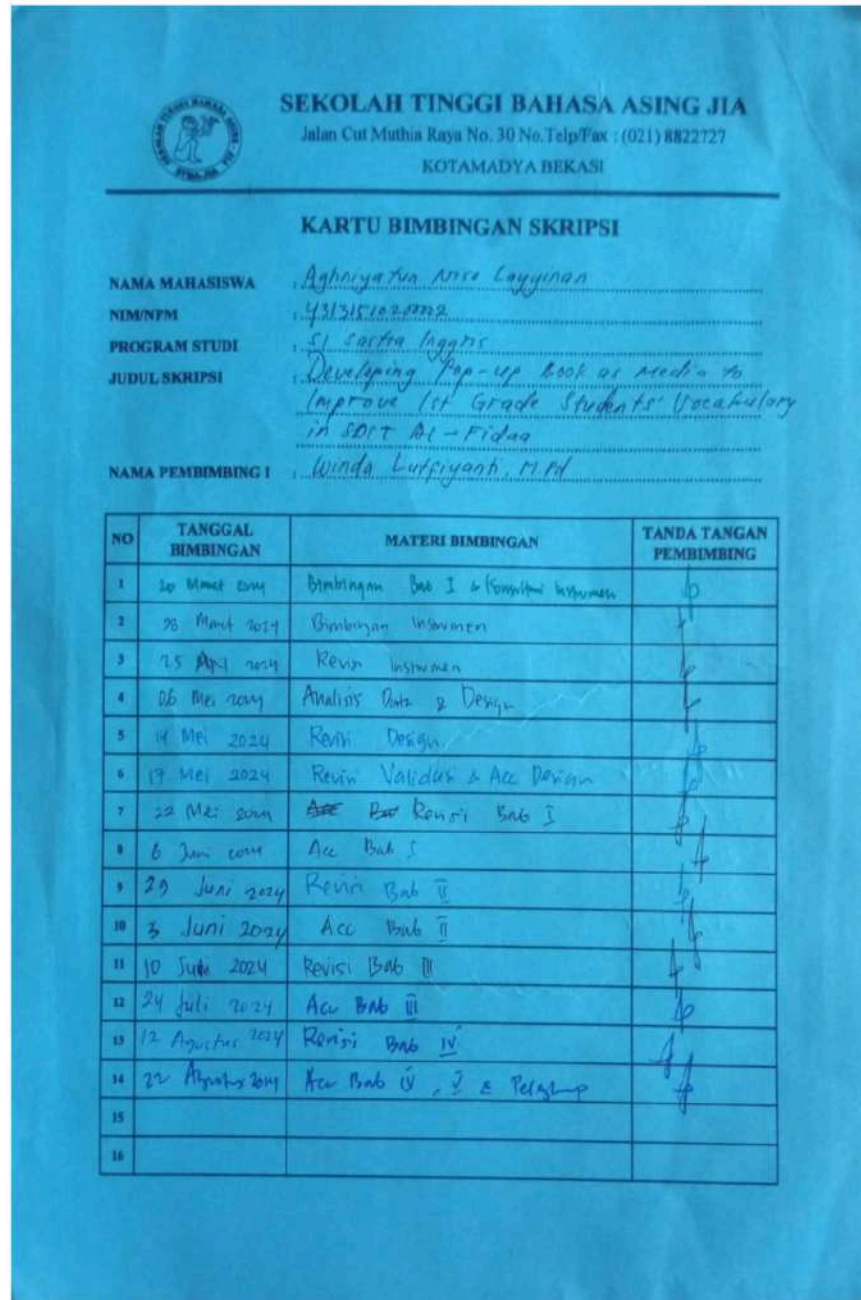 SEKOLAH TINGGI BAHASA ASING JIA
Jalan Cut Muthia Raya No. 30 No.Telp/Fax : (021) 8822727
KOTAMADYA BEKASI
KARTU BIMBINGAN SKRIPSI
NAMA MAHASISWA : Aghniyatun Nisa Layyinan
NIM/NPM :
PROGRAM STUDI : S1 Sastra Inggris
JUDUL SKRIPSI : Developing Pop-up Book as Media to
Improve 1st Grade Students' Vocabulary
in SDIT Al-Fidaa
NAMA PEMBIMBING I : Winda Lutfiyanti, M.Pd
NO TANGGAL BIMBINGAN MATERI BIMBINGAN TANDA TANGAN PEMBIMBING
1 20 Maret 2024 Bimbingan Bab I & Konsultasi Instrumen
2 28 Maret 2024 Bimbingan Instrumen
3 25 April 2024 Revisi Instrumen
4 06 Mei 2024 Analisis Data & Design
5 14 Mei 2024 Revisi Design
6 17 Mei 2024 Revisi Validasi & Acc Design
7 22 Mei 2024 Revisi Bab I
8 6 Juni 2024 Acc Bab I
9 29 Juni 2024 Revisi Bab II
10 3 Juni 2024 Acc Bab II
11 10 2024 Revisi Bab III
12 24 Juli 2024 Acc Bab III
13 12 Agustus 2024 Revisi Bab IV
14 22 Agustus 2024 Acc Bab IV, V &
15
16